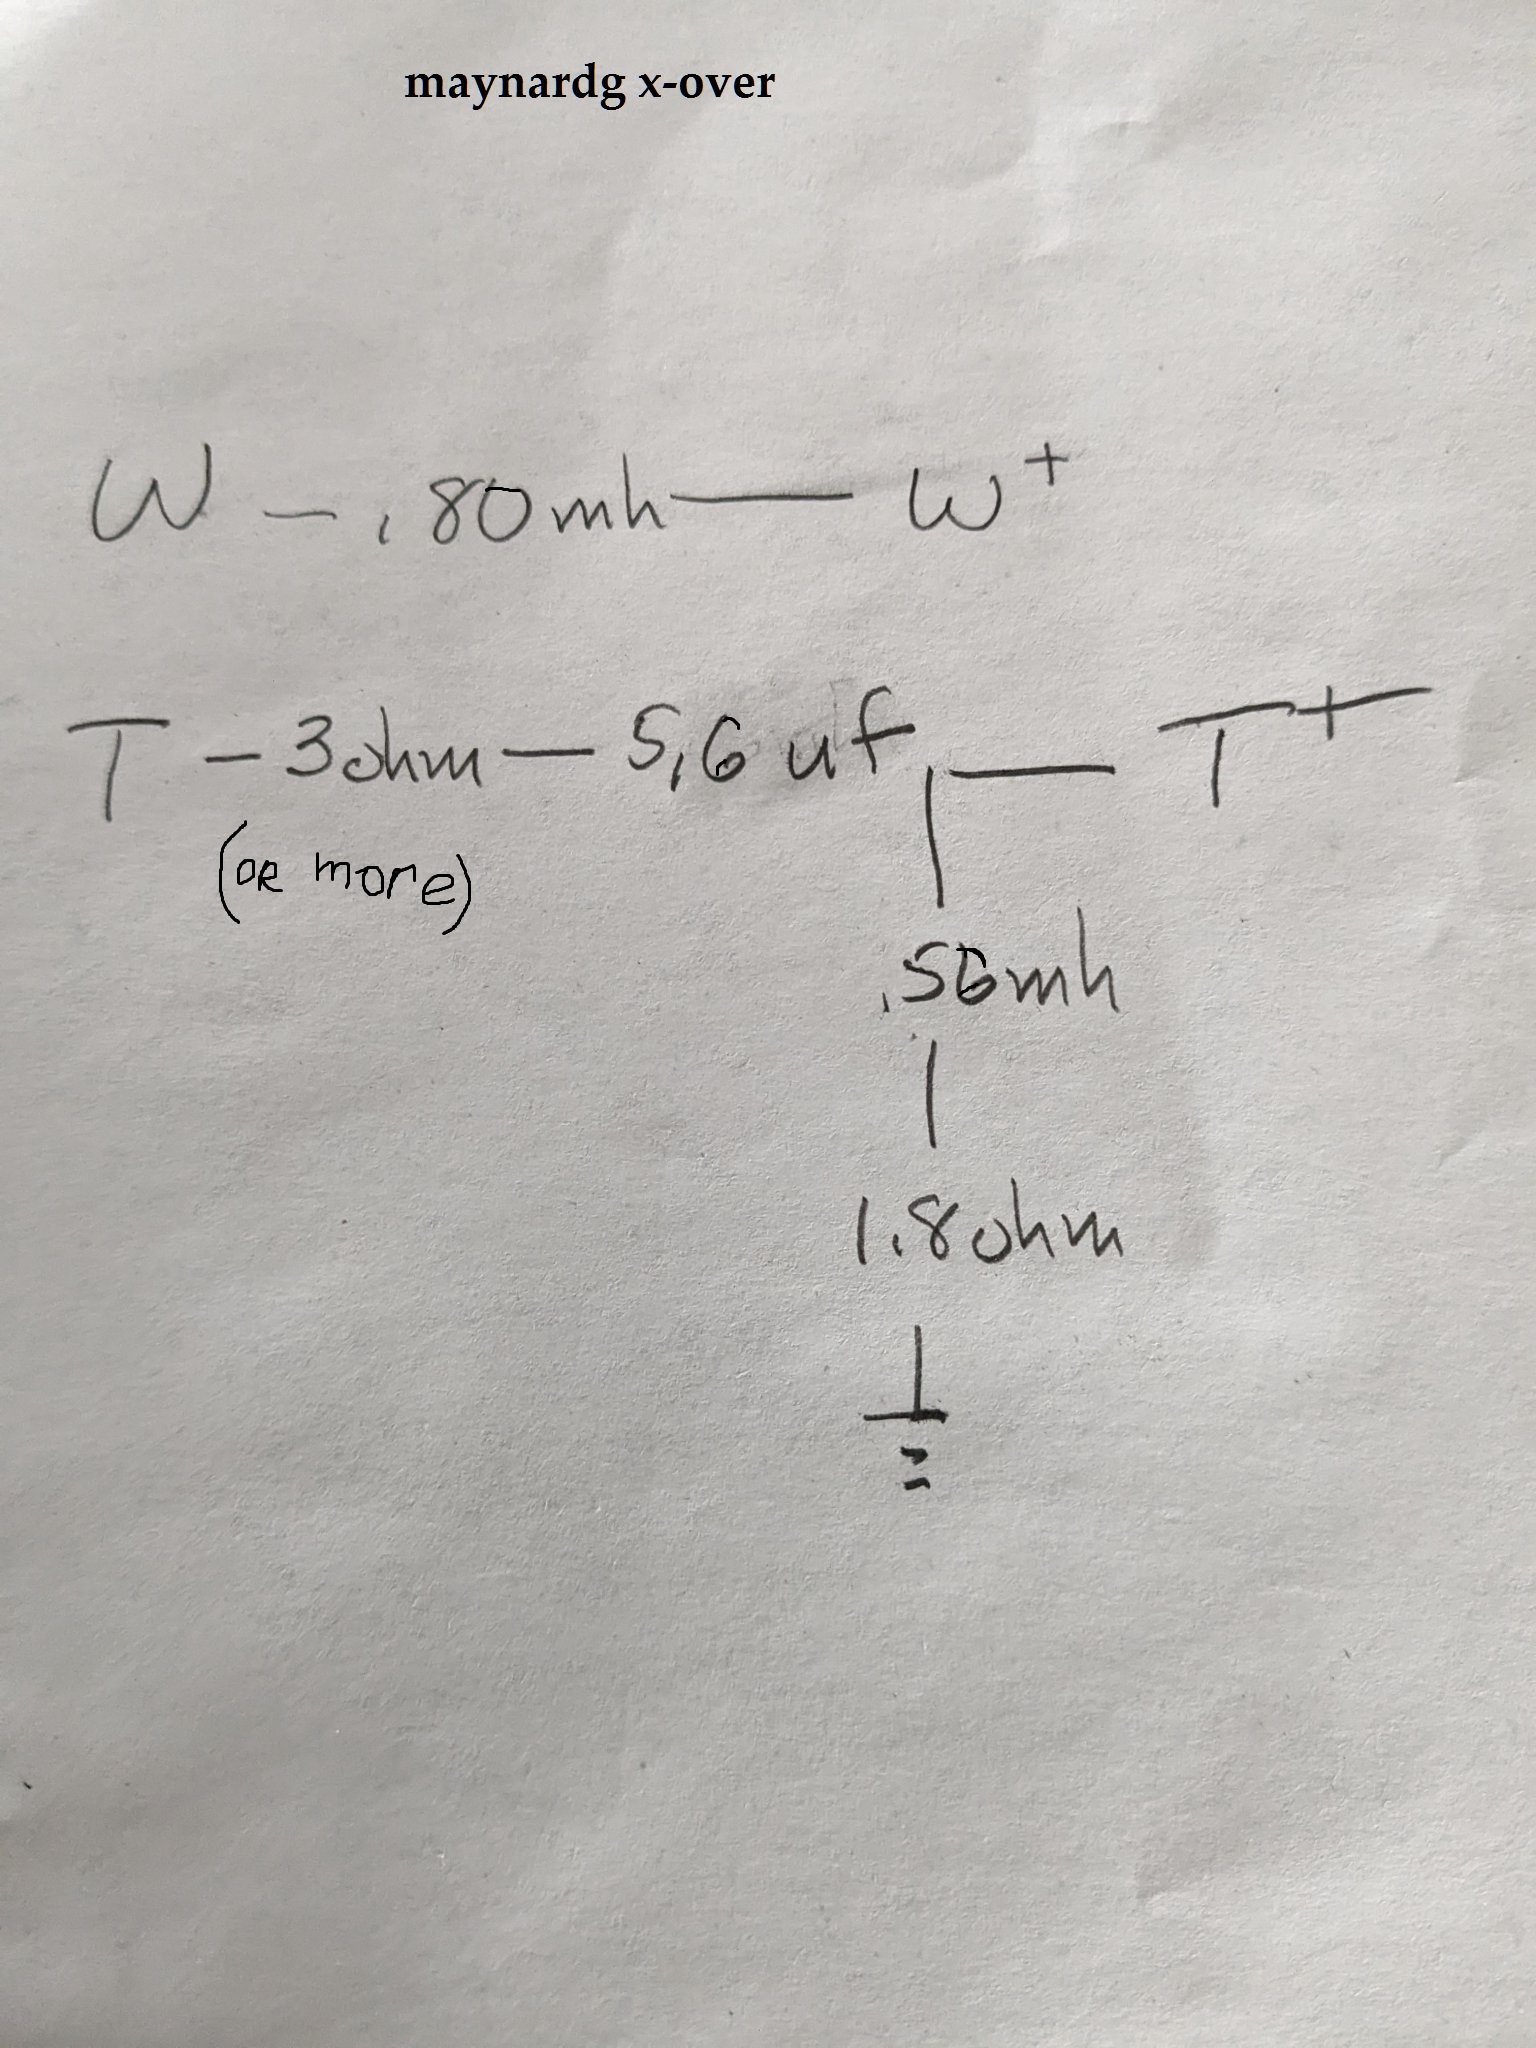 maynardg x-over
W - .80mh — W+
T - 3ohm — 5,6 uf — T+
(OR more)
.56mh
1.8ohm